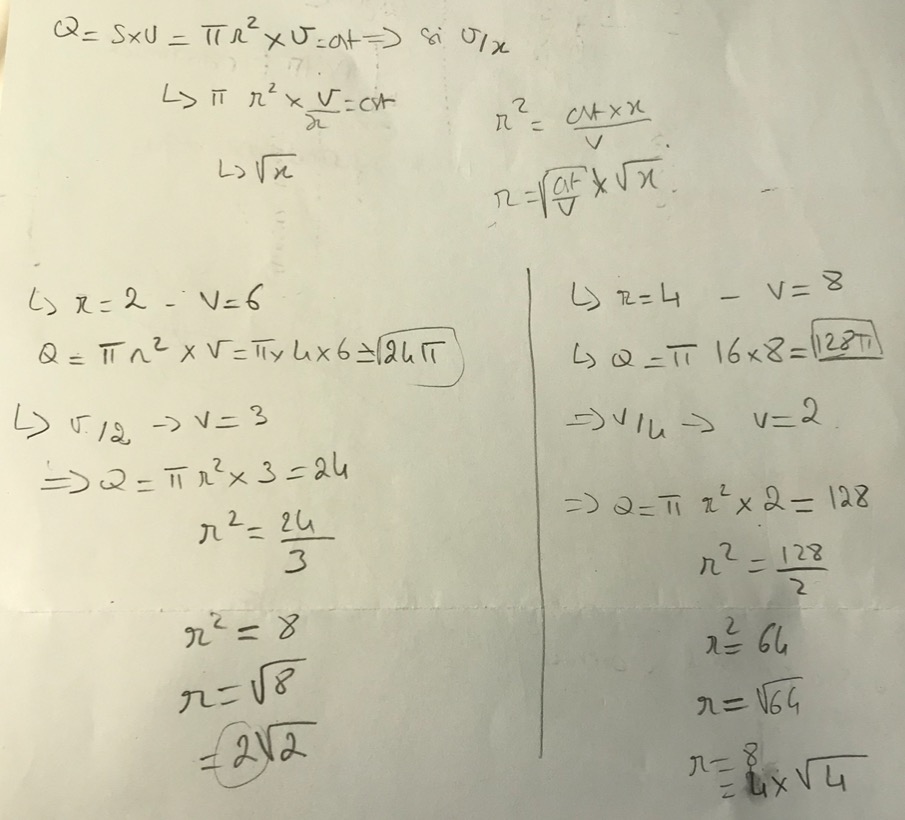 Q = S×U = π r² × V = at => si V/x
↳ π r² × V/x = at
↳ √x
r² = at × x / V
r = √(at/V) × √x.
↳ r = 2 - V = 6
Q = π r² × V = π × 4 × 6 = 24π
↳ V/2 → V = 3
=> Q = π r² × 3 = 24
r² = 24/3
r² = 8
r = √8
= 2√2
↳ r = 4 - V = 8
↳ Q = π 16 × 8 = 128π
=> V/4 → V = 2
=> Q = π r² × 2 = 128
r² = 128/2
r² = 64
r = √64
r = 8
= 4 × √4